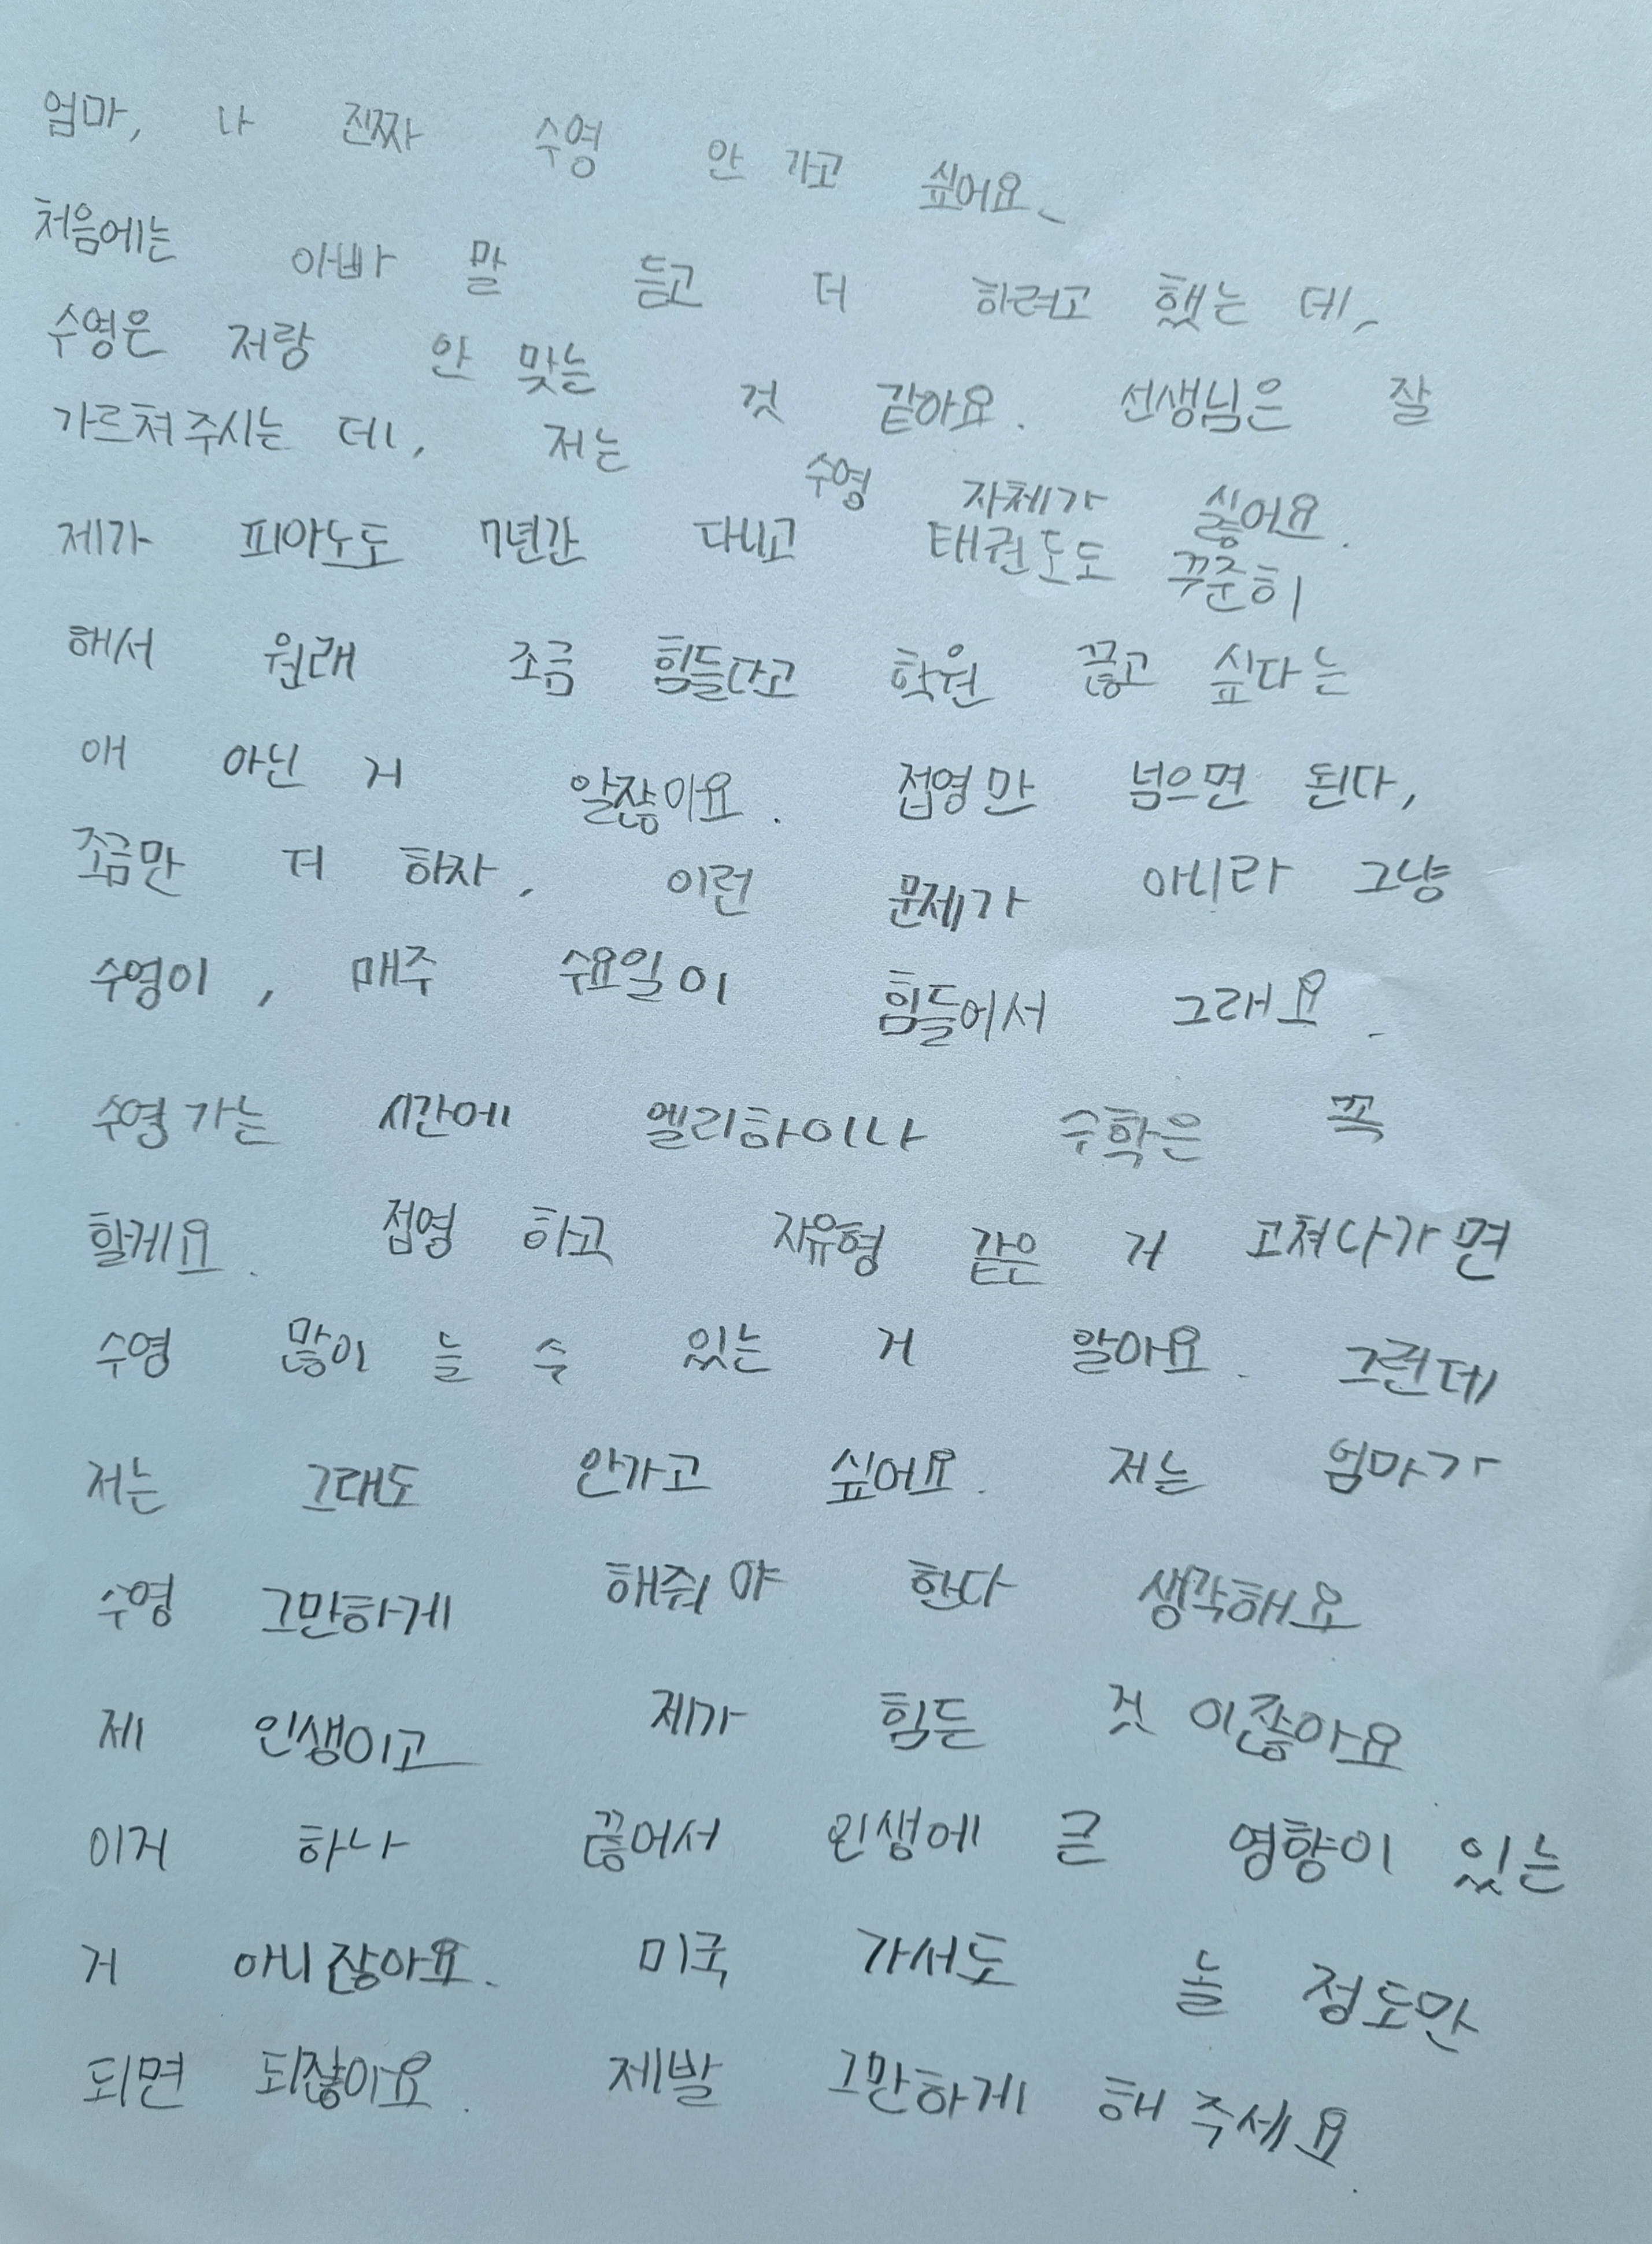 엄마, 나 진짜 수영 안 가고 싶어요.
처음에는 아빠 말 듣고 더 하려고 했는 데,
수영은 저랑 안 맞는 것 같아요. 선생님은 잘
가르쳐주시는 데, 저는 수영 자체가 싫어요.
제가 피아노도 7년간 다니고 태권도도 꾸준히
해서 원래 조금 힘들다고 학원 끊고 싶다는
애 아닌 거 알잖아요. 접영만 넘으면 된다,
조금만 더 하자, 이런 문제가 아니라 그냥
수영이, 매주 수요일이 힘들어서 그래요.
수영가는 시간에 엘리하이나 수학은 꼭
할게요. 접영 하고 자유형 같은 거 고쳐나가면
수영 많이 늘 수 있는 거 알아요. 그런데
저는 그래도 안가고 싶어요. 저는 엄마가
수영 그만하게 해줘야 한다 생각해요
제 인생이고 제가 힘든 것 이잖아요
이거 하나 끊어서 인생에 큰 영향이 있는
거 아니잖아요. 미국 가서도 놀 정도만
되면 되잖아요. 제발 그만하게 해 주세요.